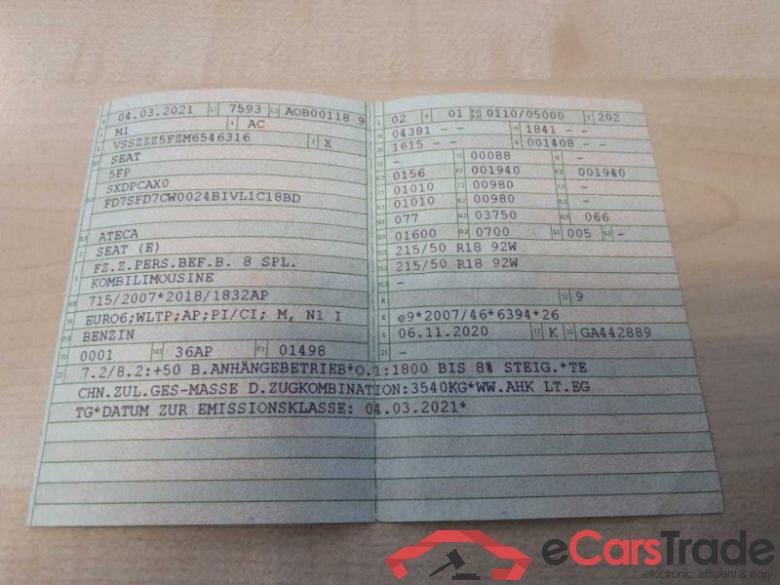 04.03.2021 7593 AOB00118 9
M1 AC
VSSZZZ5FZM6546316 X
SEAT
5FP
SXDPCAX0
FD7SFD7CW0024BIVL1C18BD
ATECA
SEAT (E)
FZ.Z.PERS.BEF.B. 8 SPL.
KOMBILIMOUSINE
715/2007*2018/1832AP
EURO6;WLTP;AP;PI/CI; M, N1 I
BENZIN
0001 36AP 01498
02 01 0110/05000 202
04381 - - 1841 - -
1615 - - 001408 - -
- 00088 -
0156 001940 001940
01010 00980 -
01010 00980 -
077 03750 066
01600 0700 005 -
215/50 R18 92W
215/50 R18 92W
-
9
e9*2007/46*6394*26
06.11.2020 K GA442889
-
7.2/8.2:+50 B.ANHÄNGEBETRIEB*O.1:1800 BIS 8% STEIG.*TE
CHN.ZUL.GES-MASSE D.ZUGKOMBINATION:3540KG*WW.AHK LT.EG
TG*DATUM ZUR EMISSIONSKLASSE: 04.03.2021*
eCarsTrade
electronic, efficient & easy